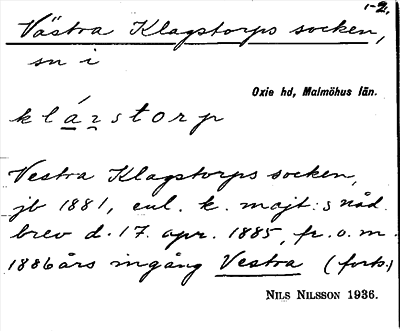 1-2.
Västra Klagstorps socken,
sn i
Oxie hd, Malmöhus län.
klá̱ꞟstorp
Vestra Klagstorps socken,
jb 1881, enl. k. majt:s nåd.
brev d. 17. apr. 1885, fr. o. m.
1886 års ingång Vestra (forts.)
NILS NILSSON 1936.